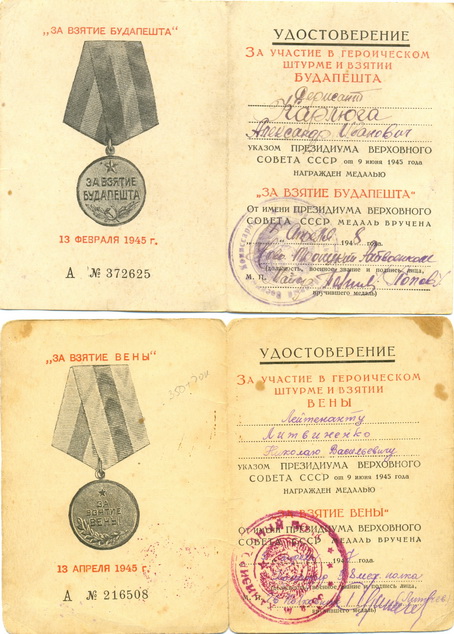 „ЗА ВЗЯТИЕ БУДАПЕШТА"
ЗА ВЗЯТИЕ
БУДАПЕШТА
13 ФЕВРАЛЯ 1945 г.
А № 372625
УДОСТОВЕРЕНИЕ
ЗА УЧАСТИЕ В ГЕРОИЧЕСКОМ
ШТУРМЕ И ВЗЯТИИ
БУДАПЕШТА
Сержант
Карлюга
Александр Иванович
УКАЗОМ ПРЕЗИДИУМА ВЕРХОВНОГО
СОВЕТА СССР от 9 июня 1945 года
НАГРАЖДЕН МЕДАЛЬЮ
„ЗА ВЗЯТИЕ БУДАПЕШТА"
От имени ПРЕЗИДИУМА ВЕРХОВНОГО
СОВЕТА СССР МЕДАЛЬ ВРУЧЕНА
194 8 года.
(должность, военное звание и подпись лица,
М. П.
вручившего медаль)
„ЗА ВЗЯТИЕ ВЕНЫ"
ЗА
ВЗЯТИЕ
ВЕНЫ
13 АПРЕЛЯ 1945 г.
А № 216508
УДОСТОВЕРЕНИЕ
ЗА УЧАСТИЕ В ГЕРОИЧЕСКОМ
ШТУРМЕ И ВЗЯТИИ
ВЕНЫ
Лейтенанту
Литвиненко
Николаю Васильевичу
УКАЗОМ ПРЕЗИДИУМА ВЕРХОВНОГО
СОВЕТА СССР от 9 июня 1945 года
НАГРАЖДЕН МЕДАЛЬЮ
„ЗА ВЗЯТИЕ ВЕНЫ"
От имени ПРЕЗИДИУМА ВЕРХОВНОГО
СОВЕТА СССР МЕДАЛЬ ВРУЧЕНА
года
полка